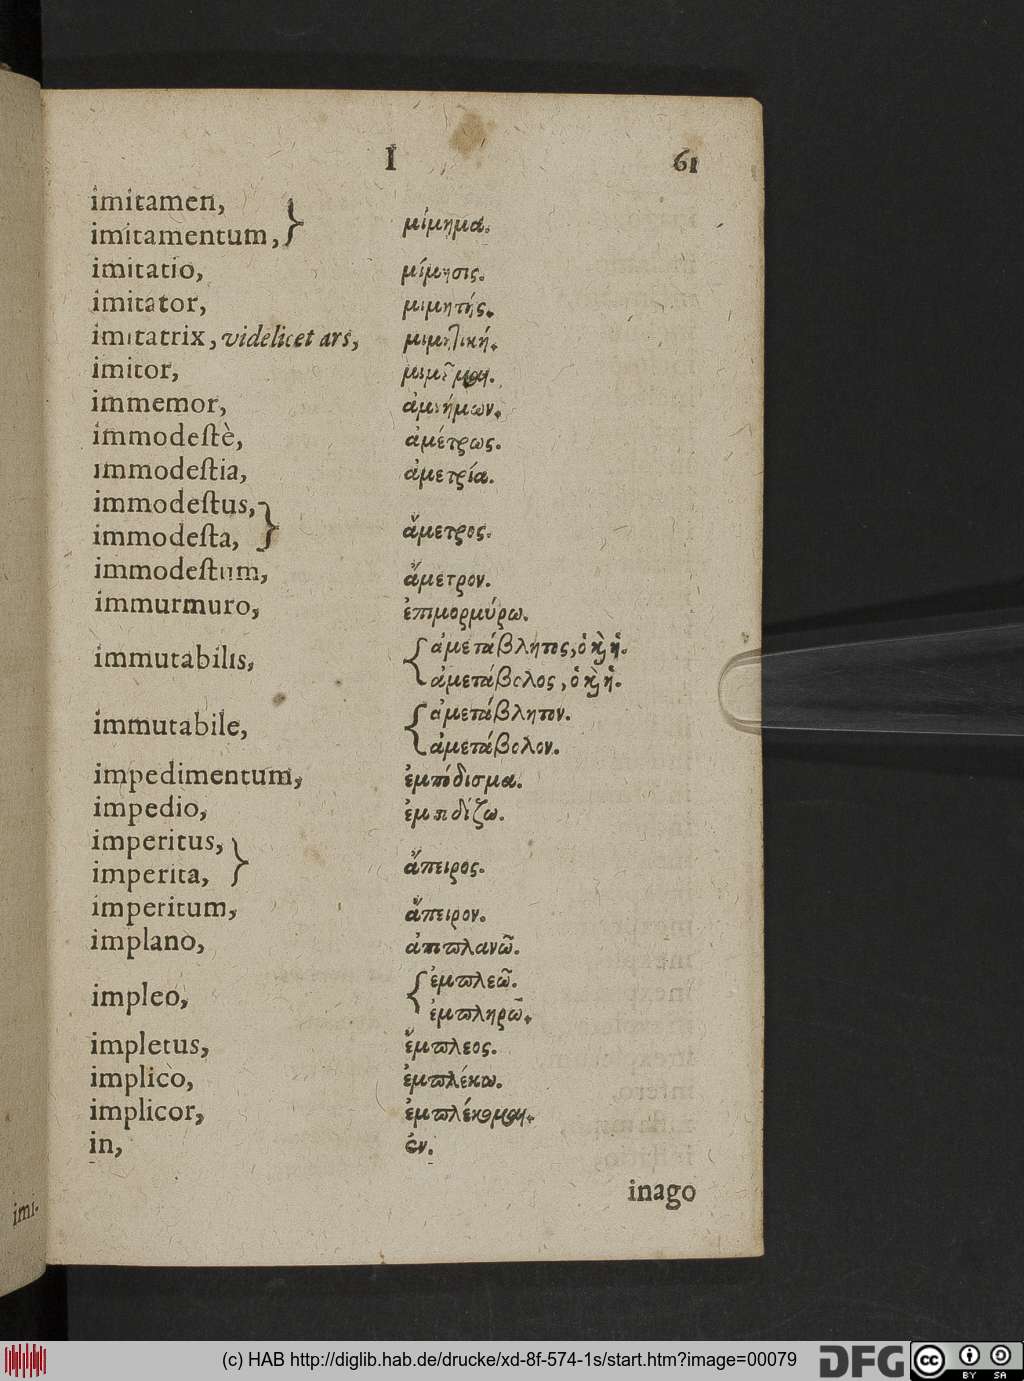 I 61
imitamen,
imitamentum, } μίμημα.
imitatio, μίμησις.
imitator, μιμητής.
imitatrix, videlicet ars, μιμητική.
imitor, μιμοῦμαι.
immemor, ἀμνήμων.
immodeſtè, ἀμέτρως.
immodeſtia, ἀμετρία.
immodeſtus,
immodeſta, } ἄμετρος.
immodeſtum, ἄμετρον.
immurmuro, ἐπιμορμύρω.
immutabilis, { ἀμετάβλητος, ὁ κὶ ἡ.
ἀμετάβολος, ὁ κὶ ἡ.
immutabile, { ἀμετάβλητον.
ἀμετάβολον.
impedimentum, ἐμπόδισμα.
impedio, ἐμποδίζω.
imperitus,
imperita, } ἄπειρος.
imperitum, ἄπειρον.
implano, ἀποπλανῶ.
impleo, { ἐμπλεῶ.
ἐμπληρῶ.
impletus, ἔμπλεος.
implico, ἐμπλέκω.
implicor, ἐμπλέκομαι.
in, ἐν.
inago
imi-
(c) HAB http://diglib.hab.de/drucke/xd-8f-574-1s/start.htm?image=00079 DFG cc BY SA